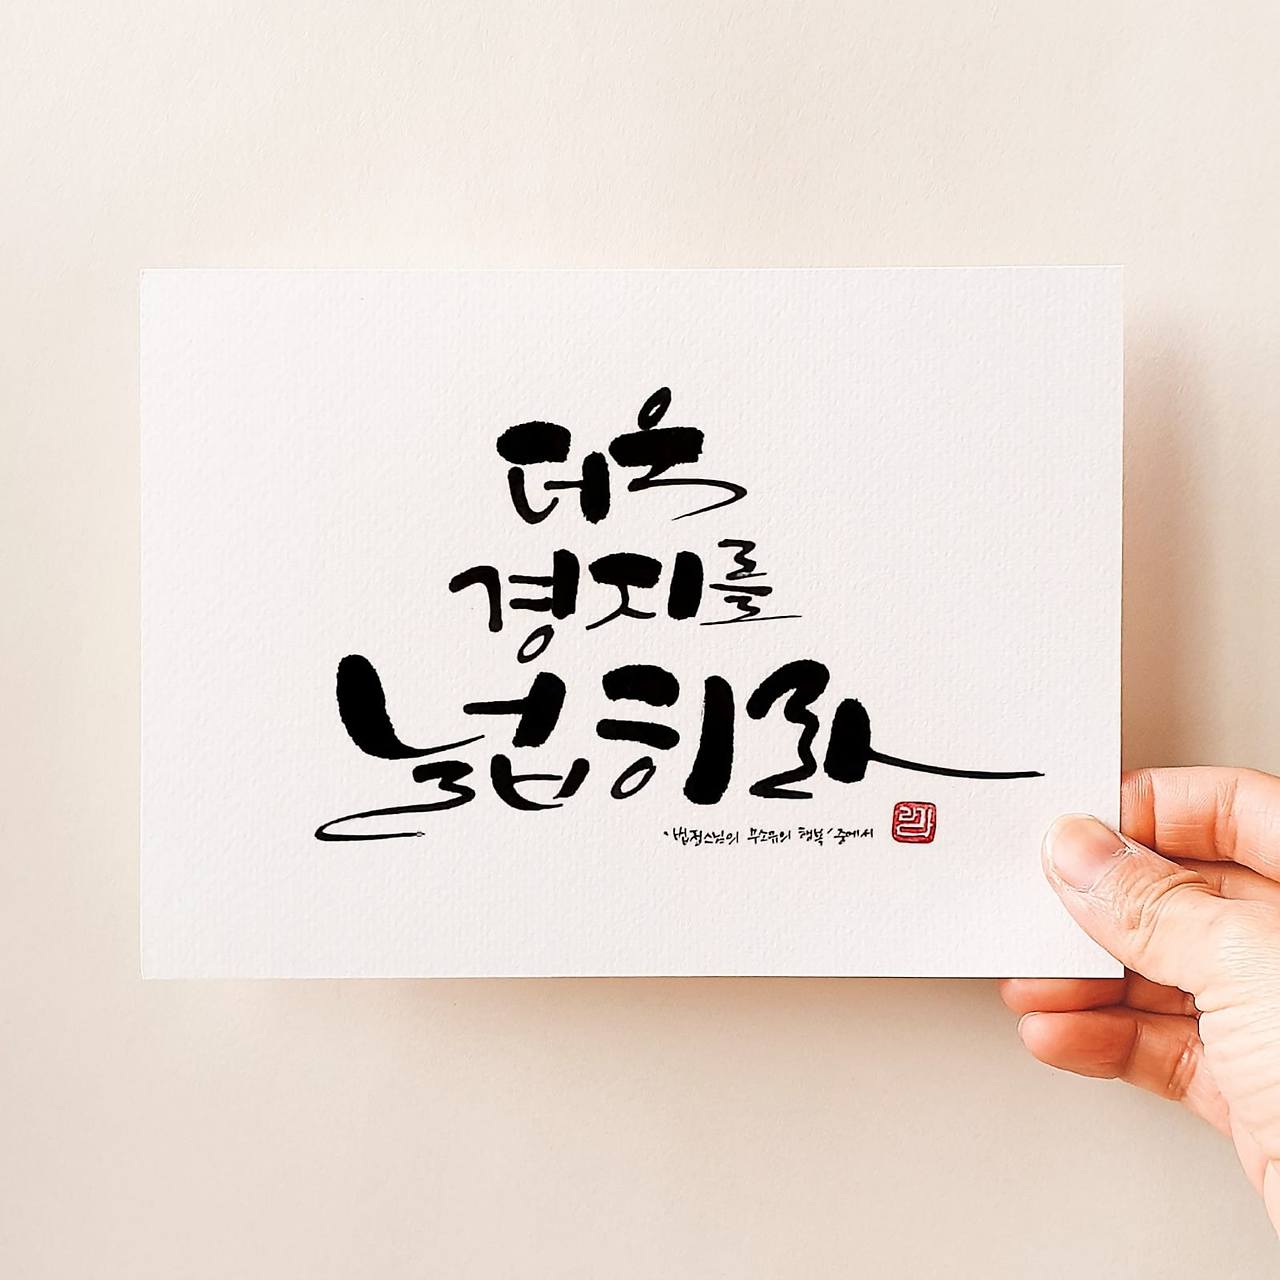 더욱
경지를
넓히라
'법정스님의 무소유의 행복' 중에서